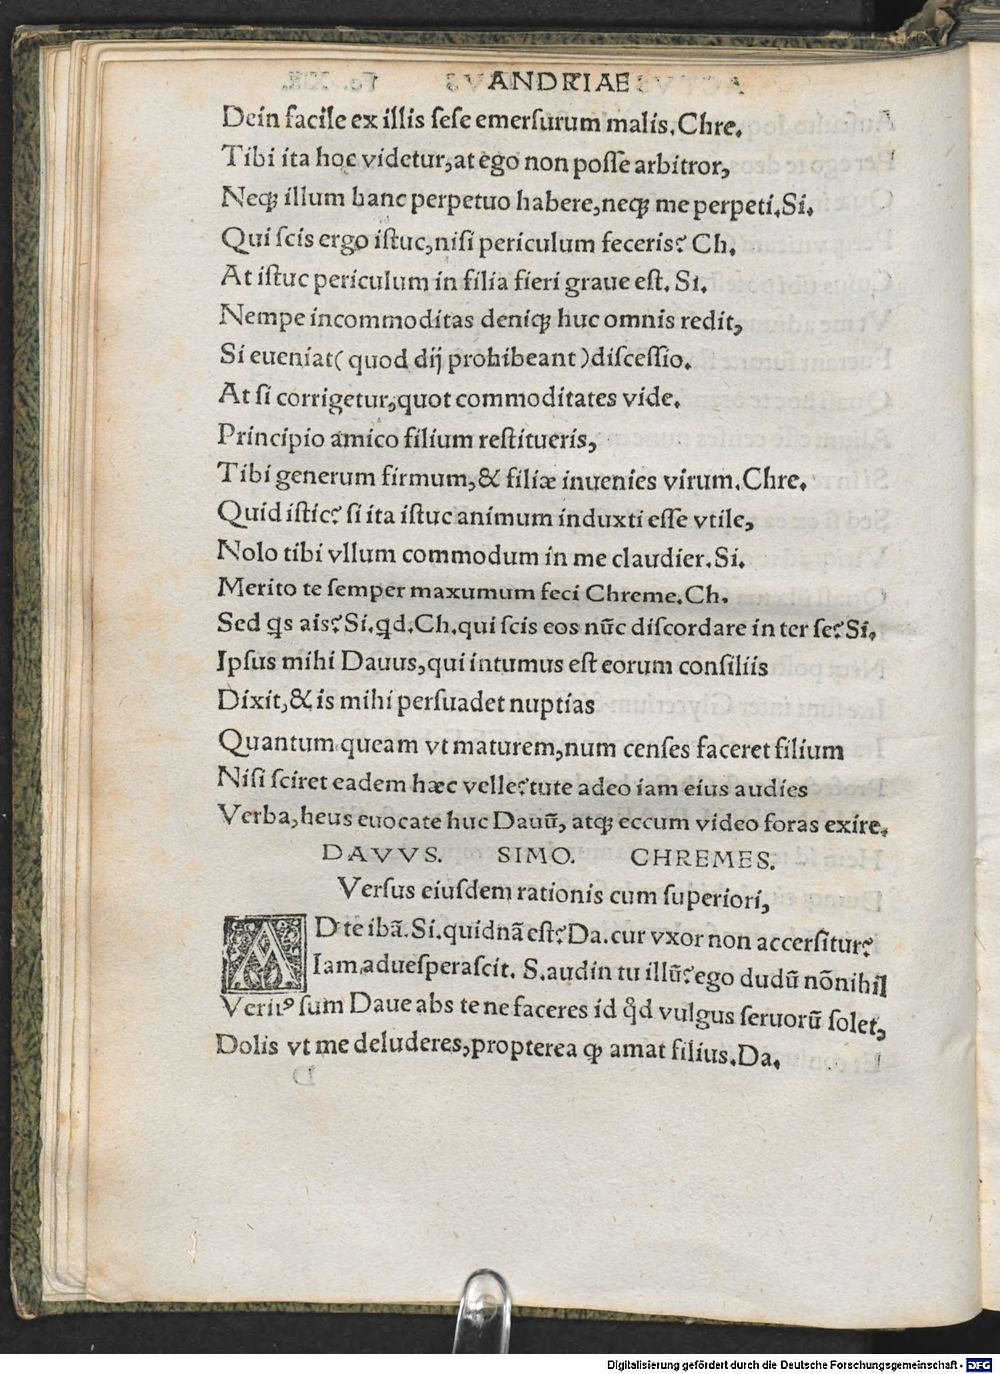 ANDRIAE
Dein facile ex illis ſeſe emerſurum malis. Chre.
Tibi ita hoc videtur, at ego non poſſe arbitror,
Neqꝫ illum hanc perpetuo habere, neqꝫ me perpeti. Si.
Qui ſcis ergo iſtuc, niſi periculum feceris? Ch.
At iſtuc periculum in filia fieri graue eſt. Si.
Nempe incommoditas deniqꝫ huc omnis redit,
Si eueniat( quod dij prohibeant )diſceſſio.
At ſi corrigetur, quot commoditates vide.
Principio amico filium reſtitueris,
Tibi generum firmum, & filiæ inuenies virum. Chre.
Quid iſtic? ſi ita iſtuc animum induxti eſſe vtile,
Nolo tibi vllum commodum in me claudier. Si.
Merito te ſemper maxumum feci Chreme. Ch.
Sed qs ais? Si. qd. Ch. qui ſcis eos nūc diſcordare in ter ſe? Si.
Ipſus mihi Dauus, qui intumus eſt eorum conſiliis
Dixit, & is mihi perſuadet nuptias
Quantum queam vt maturem, num cenſes faceret filium
Niſi ſciret eadem hæc velle? tute adeo iam eius audies
Verba, heus euocate huc Dauū, atqꝫ eccum video foras exire.
DAVVS. SIMO. CHREMES.
Verſus eiuſdem rationis cum ſuperiori,
AD te ibā. Si. quidnā eſt? Da. cur vxor non accerſitur?
Iam, adueſperaſcit. S. audin tu illū? ego dudū nōnihil
Veritꝰ ſum Daue abs te ne faceres id qd vulgus ſeruorū ſolet,
Dolis vt me deluderes, propterea ꝙ amat filius. Da.
Digitalisierung gefördert durch die Deutsche Forschungsgemeinschaft - DFG